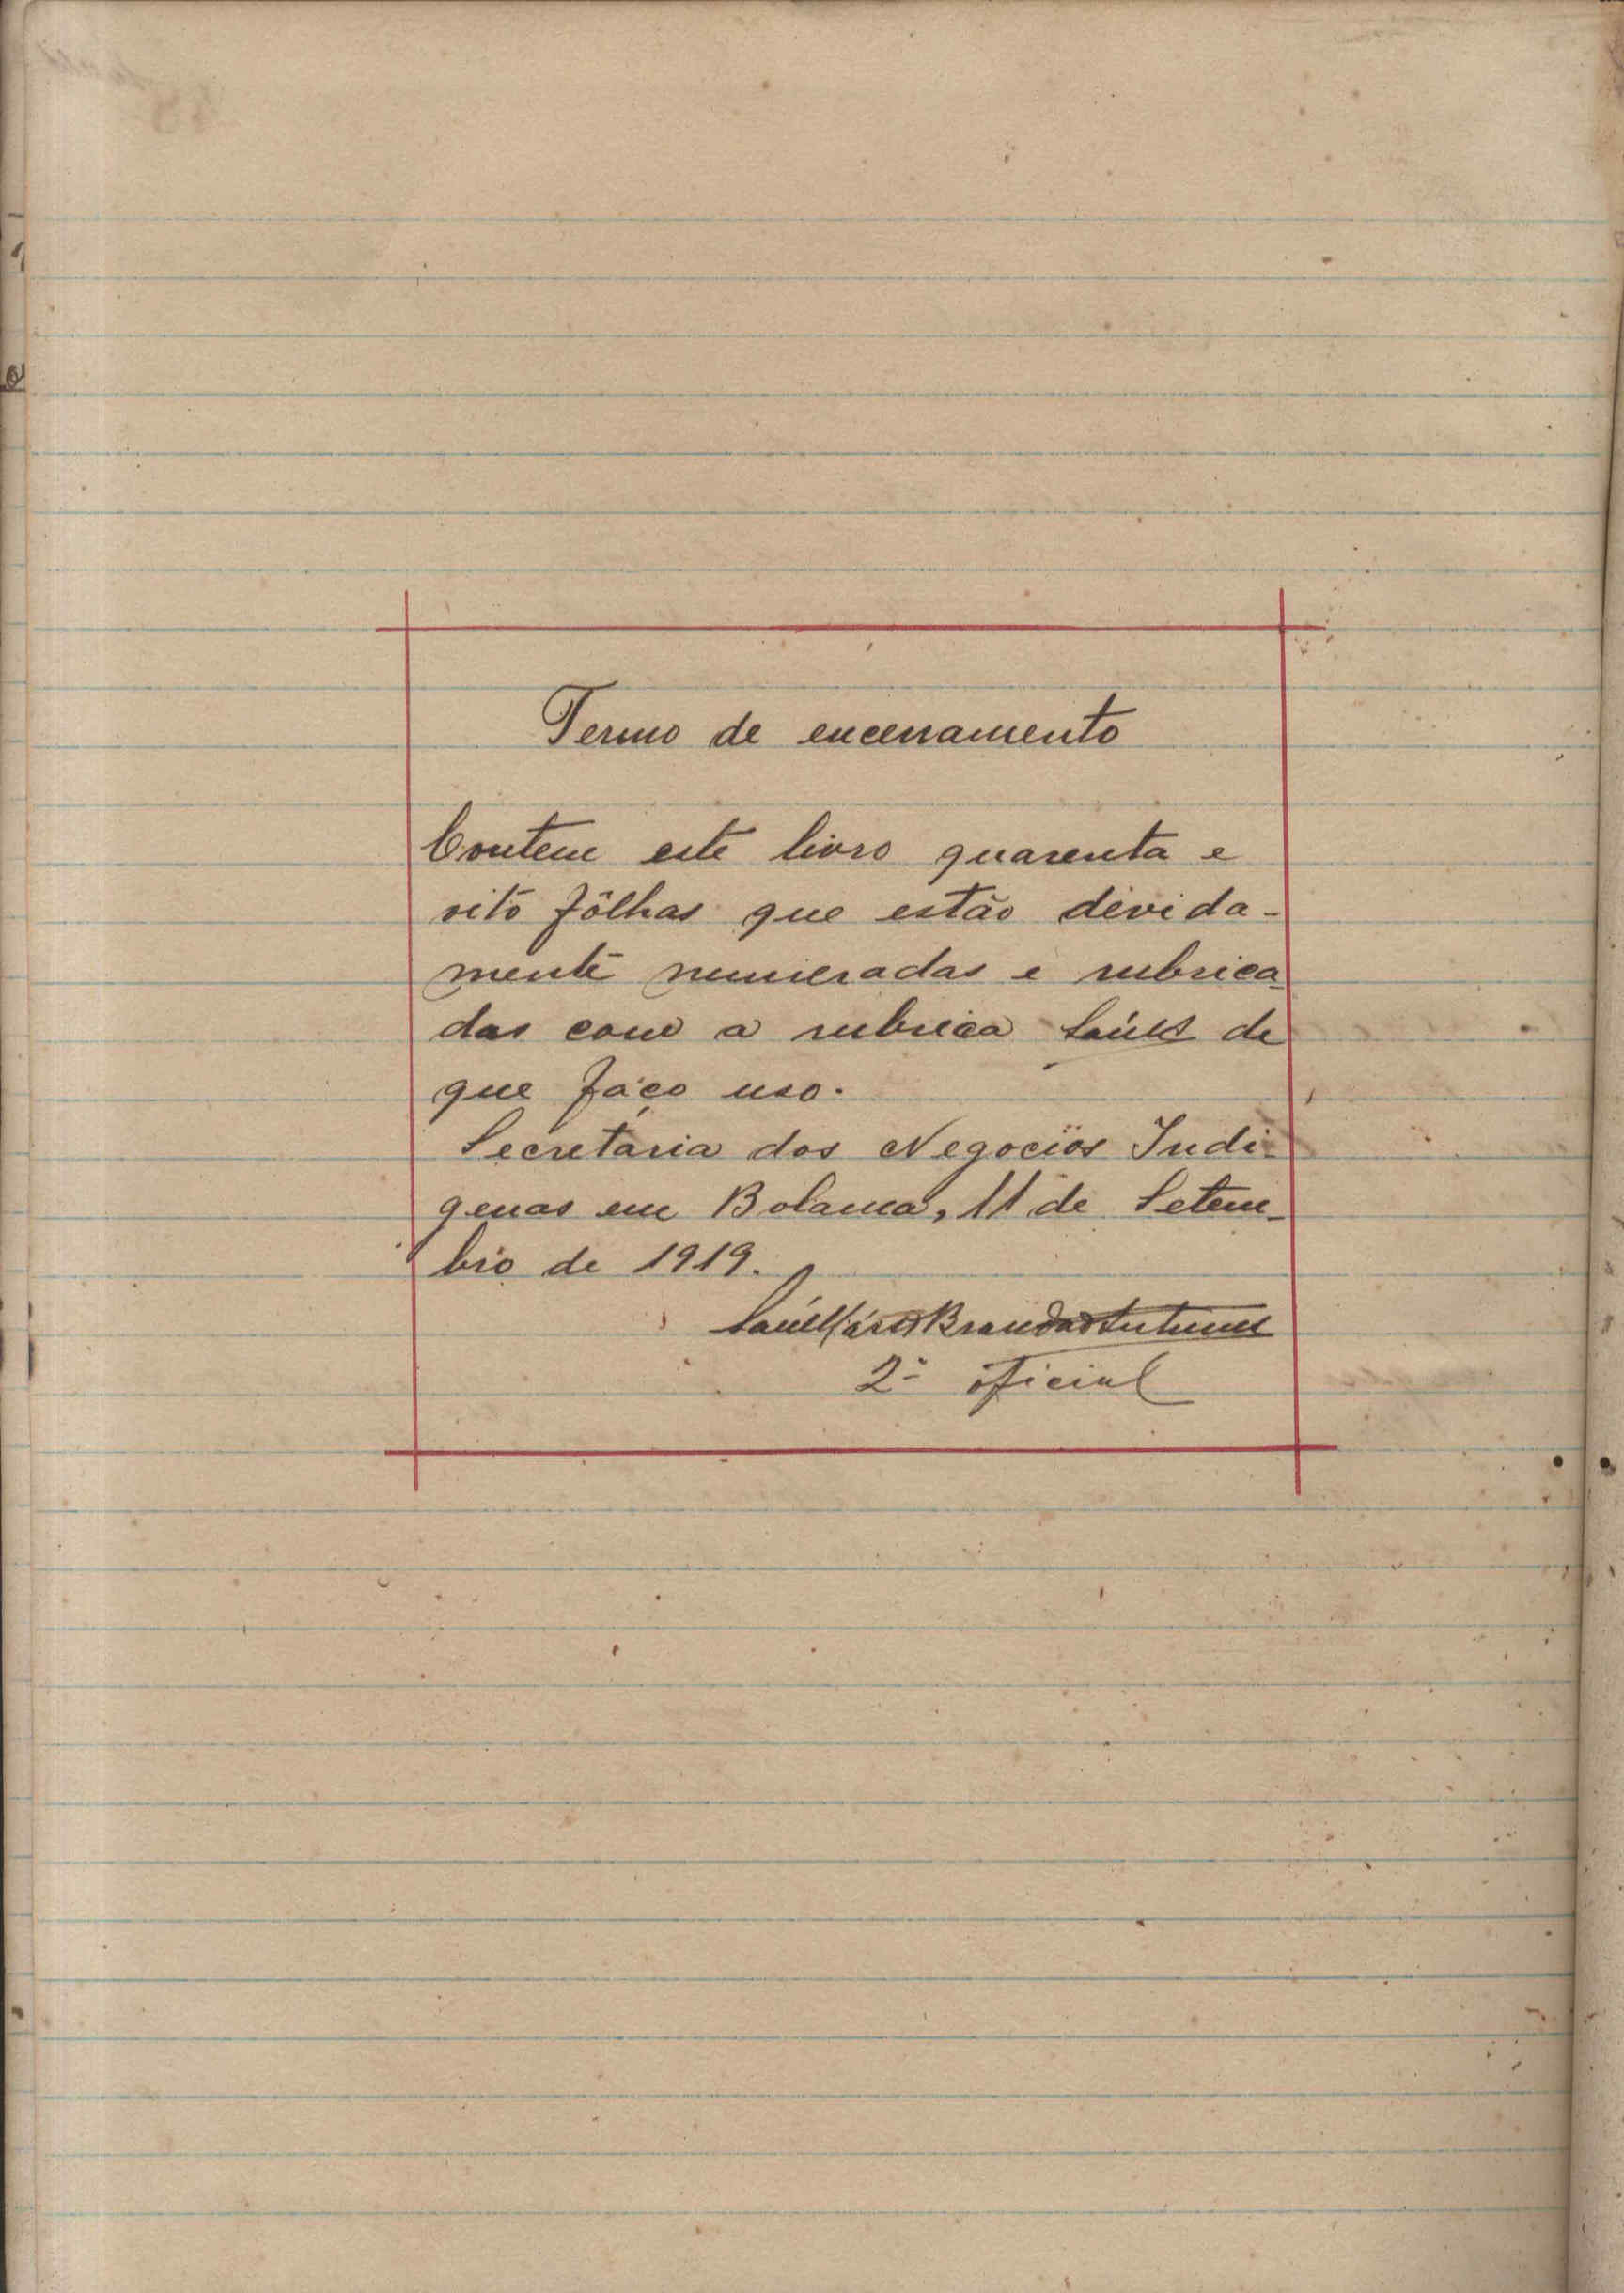 Termo de encerramento
Contem este livro quarenta e
oito fôlhas que estão devida-
mente numeradas e rubrica-
das com a rubrica Saúl de
que faço uso.
Secretaria dos Negocios Indi-
genas em Bolama, 11 de Setem-
bro de 1919.
Saúl Brandão Antunes
2º oficial